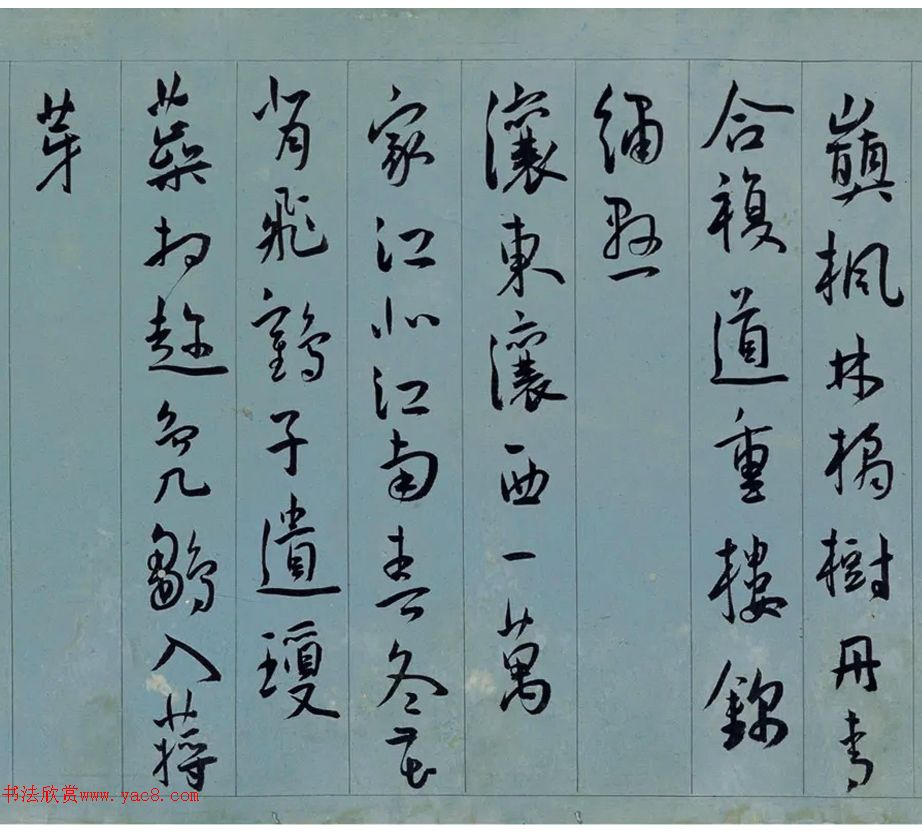 巔楓林橘樹丹青
合複道重樓錦
繡懸
瀼東瀼西一萬
家江北江南春冬花
背飛鶴子遺瓊
蘂相趂鳧鶵入蔣
芽
书法欣赏www.yac8.com